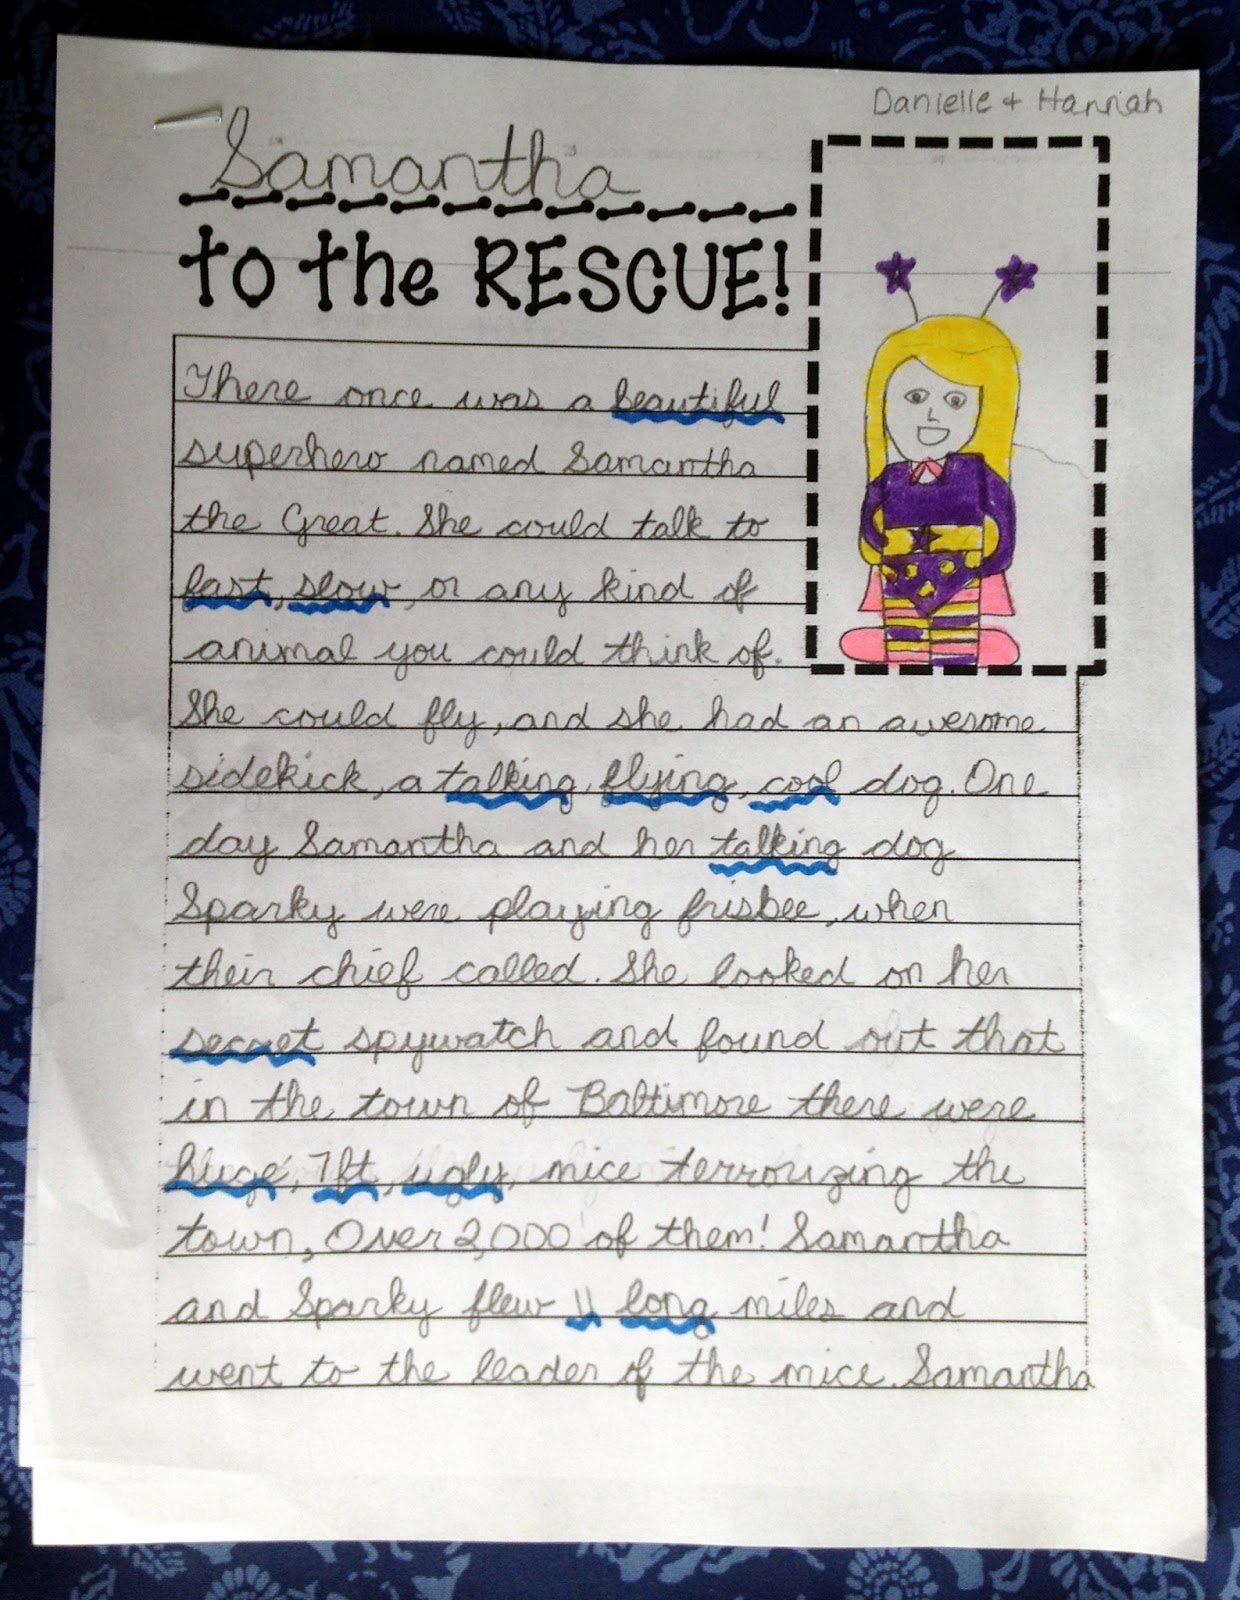 Danielle + Hannah
Samantha
to the RESCUE!
There once was a beautiful
superhero named Samantha
the Great. She could talk to
fast, slow, or any kind of
animal you could think of.
She could fly, and she had an awesome
sidekick, a talking, flying, cool dog. One
day Samantha and her talking dog
Sparky were playing frisbee, when
their chief called. She looked on her
secret spywatch and found out that
in the town of Baltimore there were
huge, 7ft, ugly, mice terrorizing the
town, Over 2,000 of them! Samantha
and Sparky flew 11 long miles and
went to the leader of the mice. Samantha